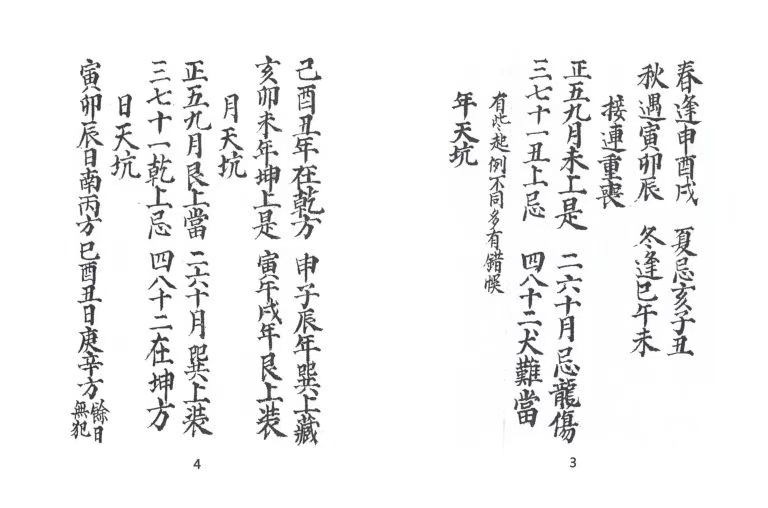 春逢申酉戌 夏忌亥子丑
秋遇寅卯辰 冬逢巳午未
接連重喪
正五九月未上是 二六十月忌龍傷
三七十一丑上忌 四八十二犬難當
有些起例不同多有錯悞
年天坑
3
己酉丑年在乾方 申子辰年巽上藏
亥卯未年坤上是 寅午戌年艮上装
月天坑
正五九月艮上當 二六十月巽上装
三七十一乾上忌 四八十二在坤方
日天坑
寅卯辰日南丙方 巳酉丑日庚辛方 餘日無犯
4